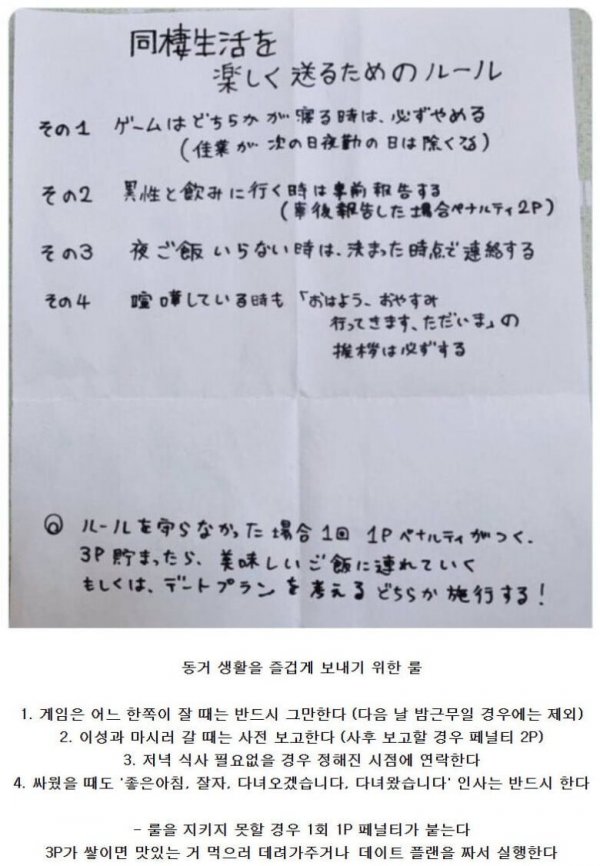 同棲生活を
楽しく送るためのルール
その1 ゲームはどちらかが寝る時は、必ずやめる
(佳業が次の日夜勤の日は除くる)
その2 異性と飲みに行く時は事前報告する
(事後報告した場合ペナルティ2P)
その3 夜ご飯いらない時は、決まった時点で連絡する
その4 喧嘩している時も「おはよう、おやすみ
行ってきます、ただいま」の
挨拶は必ずする
◎ ルールを守らなかった場合1回 1Pペナルティがつく、
3P貯まったら、美味しいご飯に連れていく
もしくは、デートプランを考えるどちらか施行する!
동거 생활을 즐겁게 보내기 위한 룰
1. 게임은 어느 한쪽이 잘 때는 반드시 그만한다 (다음 날 밤근무일 경우에는 제외)
2. 이성과 마시러 갈 때는 사전 보고한다 (사후 보고할 경우 페널티 2P)
3. 저녁 식사 필요없을 경우 정해진 시점에 연락한다
4. 싸웠을 때도 '좋은아침, 잘자, 다녀오겠습니다, 다녀왔습니다' 인사는 반드시 한다
- 룰을 지키지 못할 경우 1회 1P 페널티가 붙는다
3P가 쌓이면 맛있는 거 먹으러 데려가주거나 데이트 플랜을 짜서 실행한다